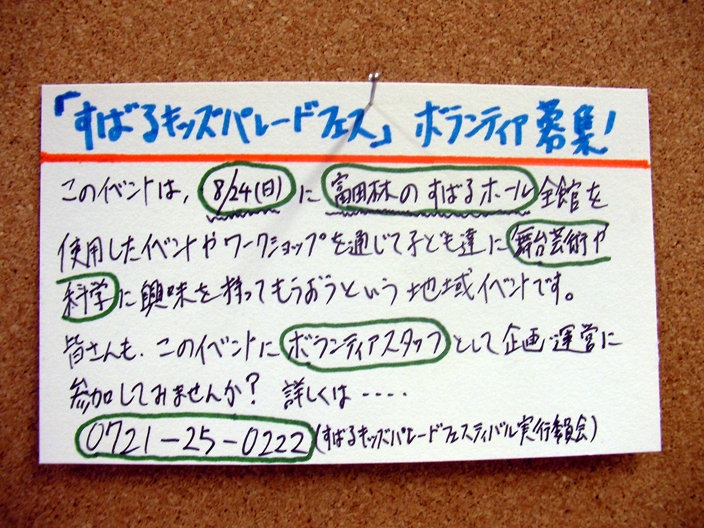 「すばるキッズパレードフェス」 ボランティア募集!
このイベントは, 8/24(日)に富田林のすばるホール全館を
使用したイベントやワークショップを通じて子ども達に舞台芸術や
科学に興味を持ってもらおうという地域イベントです。
皆さんも、このイベントにボランティアスタッフとして企画・運営に
参加してみませんか? 詳しくは・・・・
0721-25-0222(すばるキッズパレードフェスティバル実行委員会)